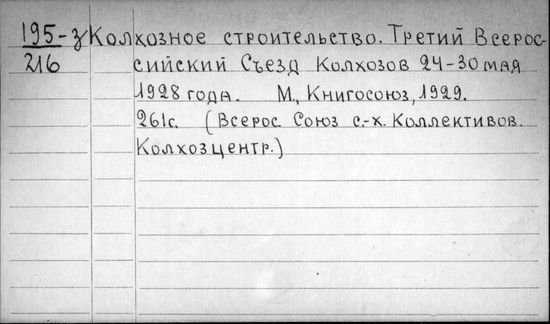 195-з Колхозное строительство. Третий Всерос-
216 сийский Съезд Колхозов 24-30 мая
1928 года. М., Книгосоюз, 1929.
261с. (Всерос. Союз с.-х. Коллективов.
Колхозцентр.)